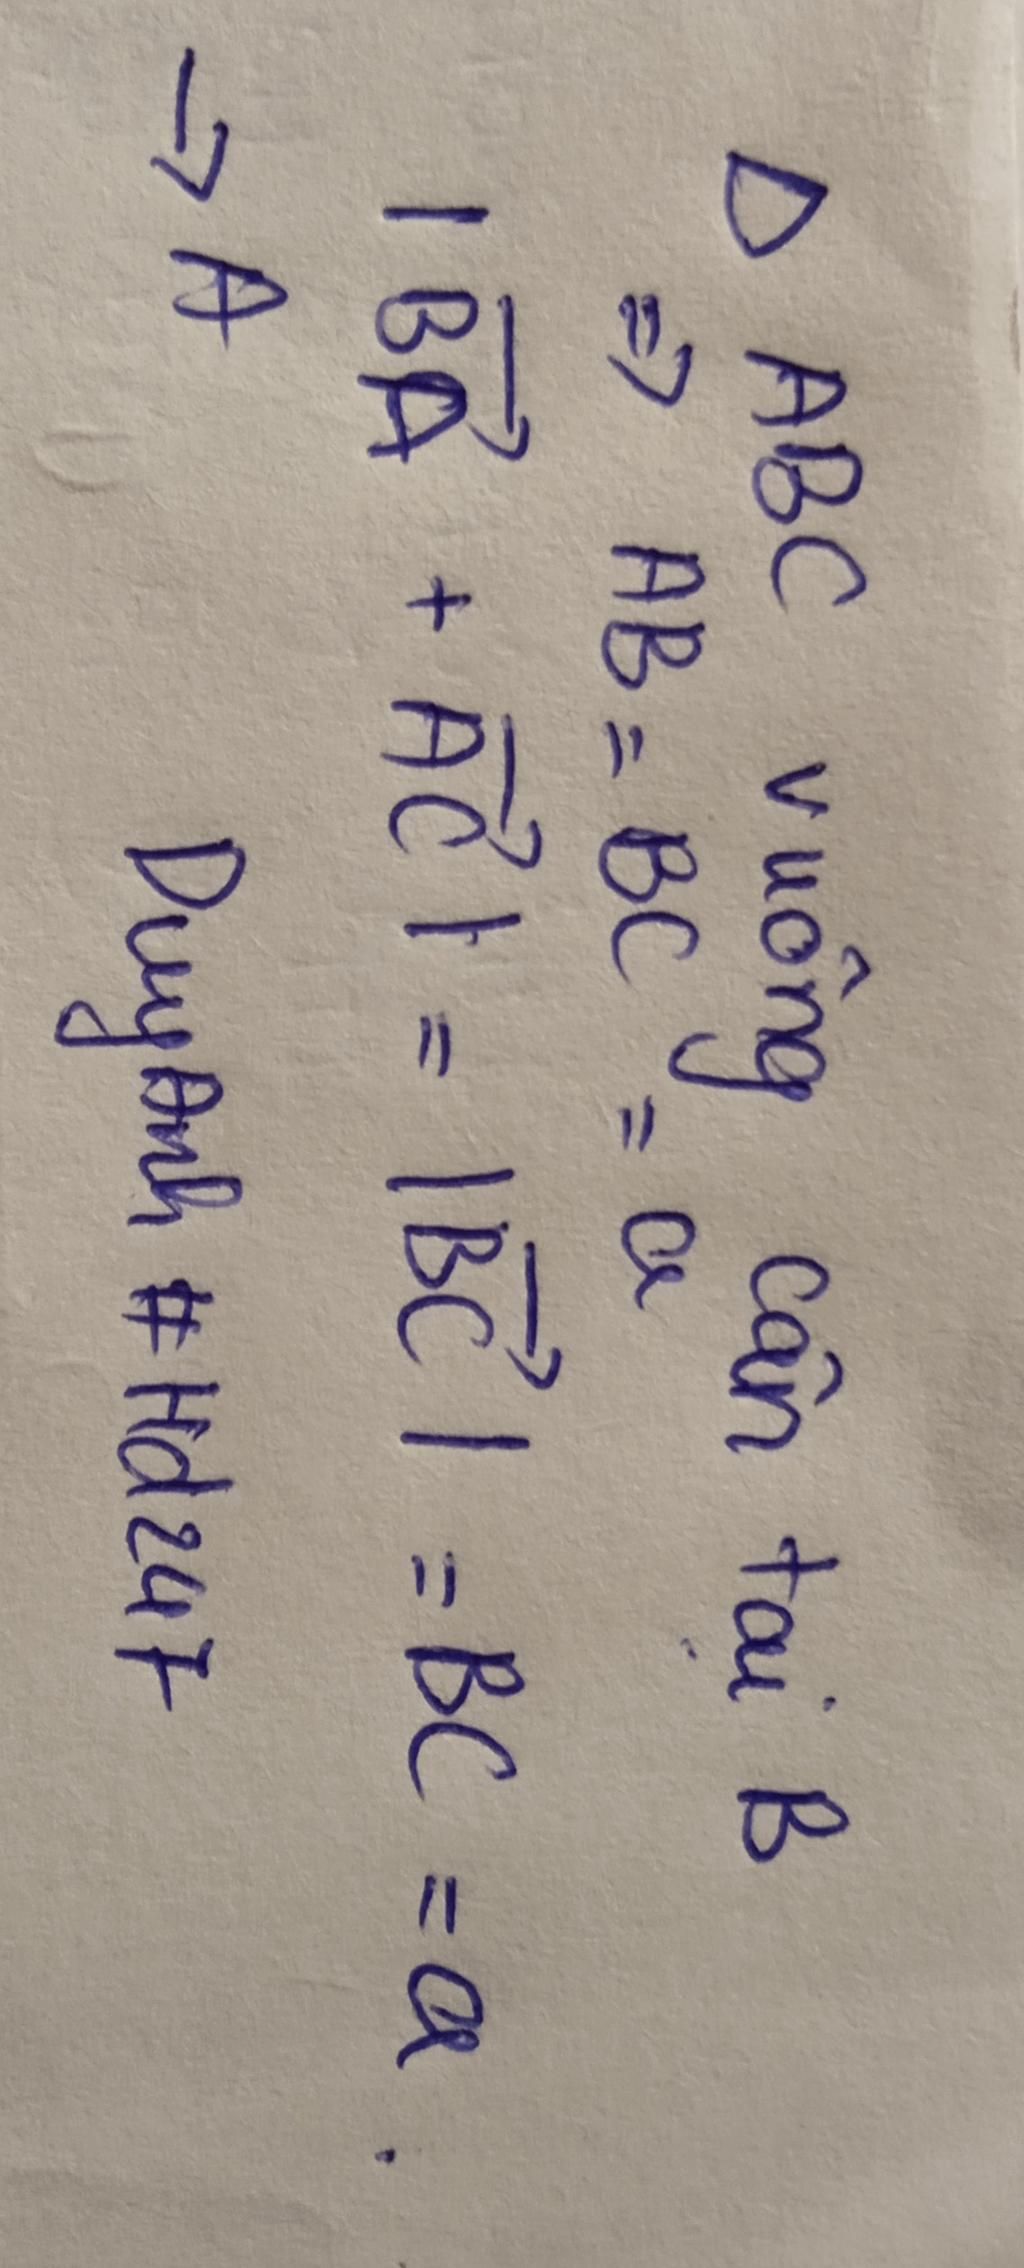 Δ ABC vuông cân tại B
⇒ AB = BC = a
|\overrightarrow{BA} + \overrightarrow{AC}| = |\overrightarrow{BC}| = BC = a.
→ A Duyanh #Hd247